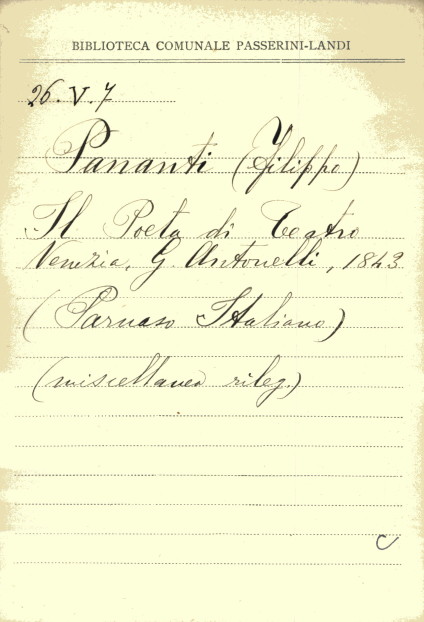 BIBLIOTECA COMUNALE PASSERINI-LANDI
26. V. 7
Pananti (Filippo)
Il Poeta di Teatro
Venezia, G. Antonelli, 1843
(Parnaso Italiano)
(miscellanea rileg.)
C